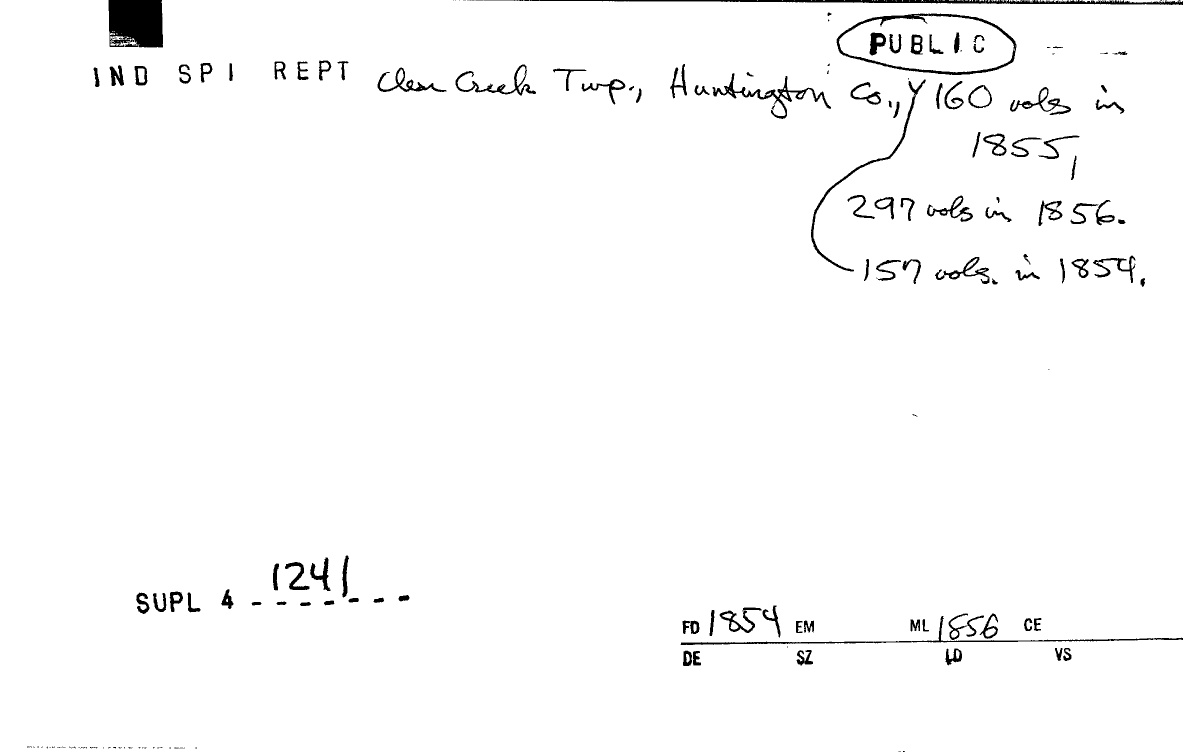 PUBLIC
IND SPI REPT Clear Creek Twp., Huntington Co., 160 vols in
1855,
297 vols in 1856.
157 vols. in 1854.
SUPL 4 1241
FD 1854 EM ML 1856 CE
DE SZ LD VS